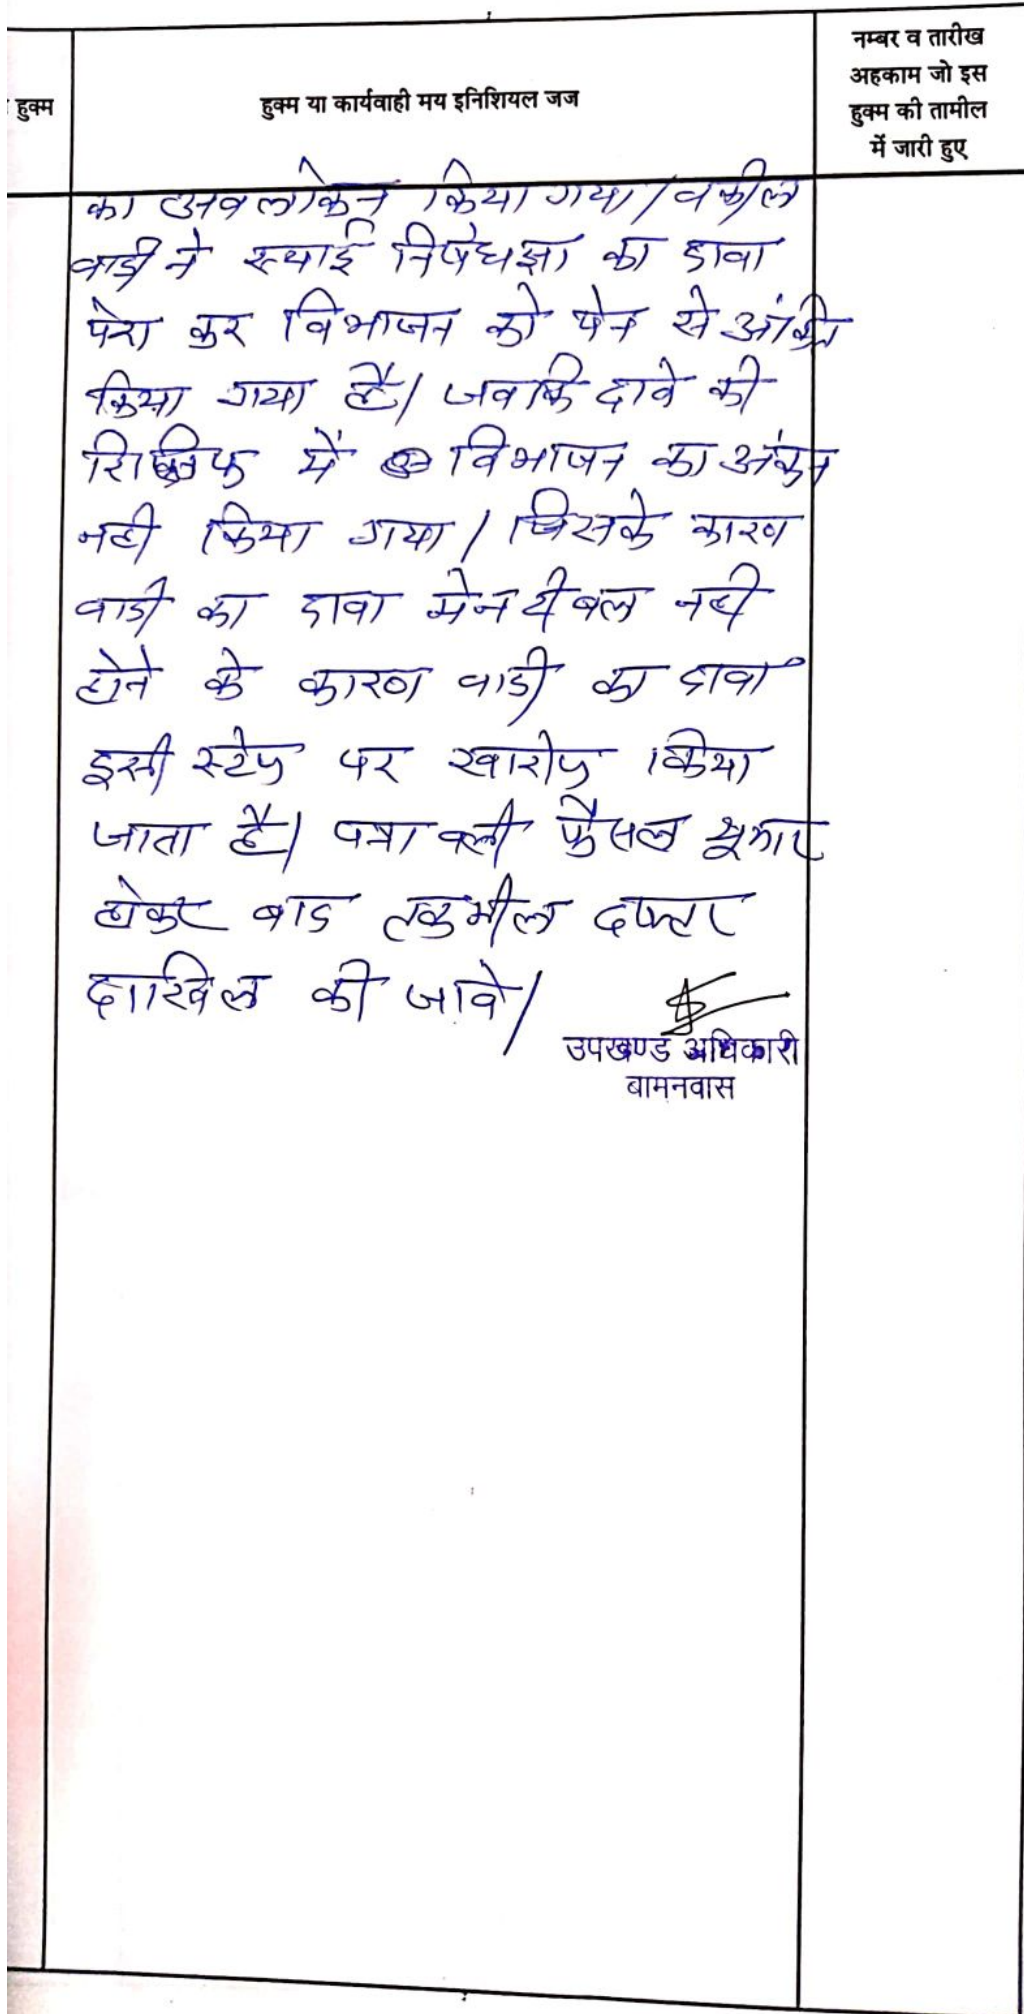 हुक्म
हुक्म या कार्यवाही मय इनिशियल जज
नम्बर व तारीख
अहकाम जो इस
हुक्म की तामील
में जारी हुए
का अवलोकन किया गया। वकील
वादी ने स्थाई निषेधज्ञा का दावा
पेश कर विभाजन को पेन से अंकित
किया गया है। जबकि दावे की
रिलिफ में विभाजन का अंकन
नही किया गया। जिसके कारण
वादी का दावा मेनटीबल नही
होने के कारण वादी का दावा
इसी स्टेज पर खारीज किया
जाता है। पत्रावली फैसल शूमार
होकर बाद तकमील दफ्तर
दाखिल की जावे।
उपखण्ड अधिकारी
बामनवास